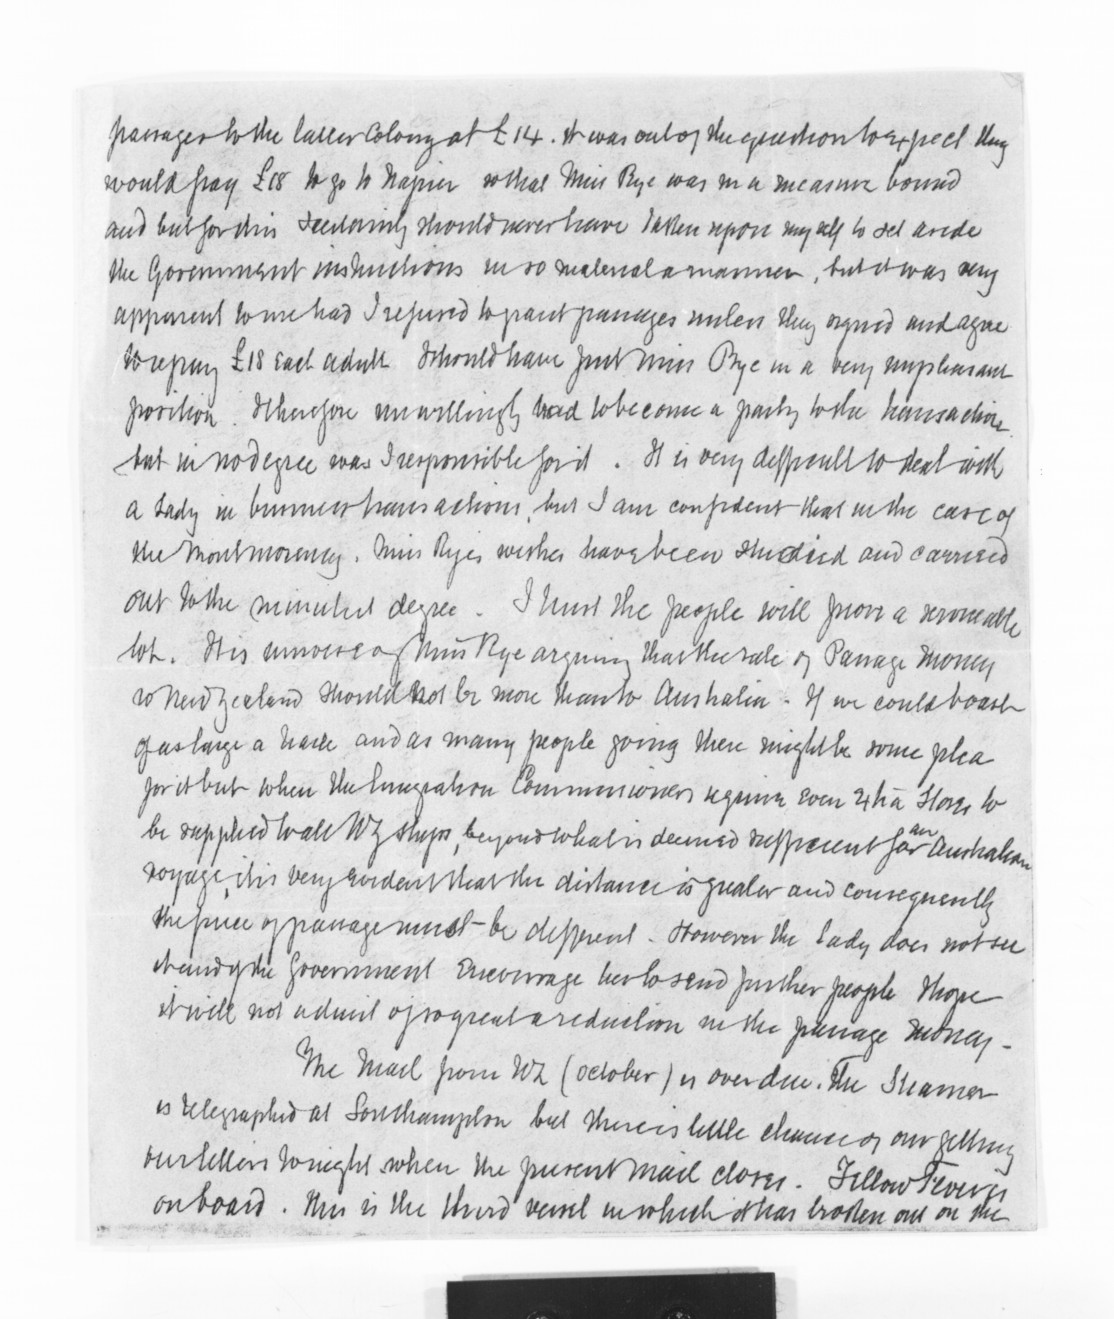 passages to the latter Colony at £14. it was out of the question to expect they
would pay £18 to go to Napier so that Miss Rye was in a measure bound
and but for this I certainly should never have taken upon myself to set aside
the Government instructions in so material a manner, but it was very
apparent to me had I refused to grant passages unless they signed and agree
to repay £18 each adult I should have put Miss Rye in a very unpleasant
position. I therefore unwillingly had to become a party to the transaction
but in no degree was I responsible for it. It is very difficult to deal with
a Lady in business transactions, but I am confident that in the case of
the Montmorency. Miss Ryes wishes have been studied and carried
out to the minutest degree. I trust the people will prove a serviceable
lot. It is unwise of Miss Rye arguing that the rate of Passage Money
to New Zealand should not be more than to Australia. If we could boast
of as large a trade and as many people going there might be some plea
for it but when the Emigration Commissioners require even extra Stores to
be supplied to all NZ ships, beyond what is deemed sufficient for an Australian
voyage, it is very evident that the distance is greater and consequently
the price of passage must be different. However the Lady does not see
it and if the Government Encourage her to send further people I hope
it will not admit of so great a reduction in the passage money.
The Mail from NZ (october) is over due. The Steamer
is telegraphed at Southampton but there is little chance of our getting
our letters tonight when the present mail closes. Yellow Fever is
on board. This is the third vessel in which it has broken out on the